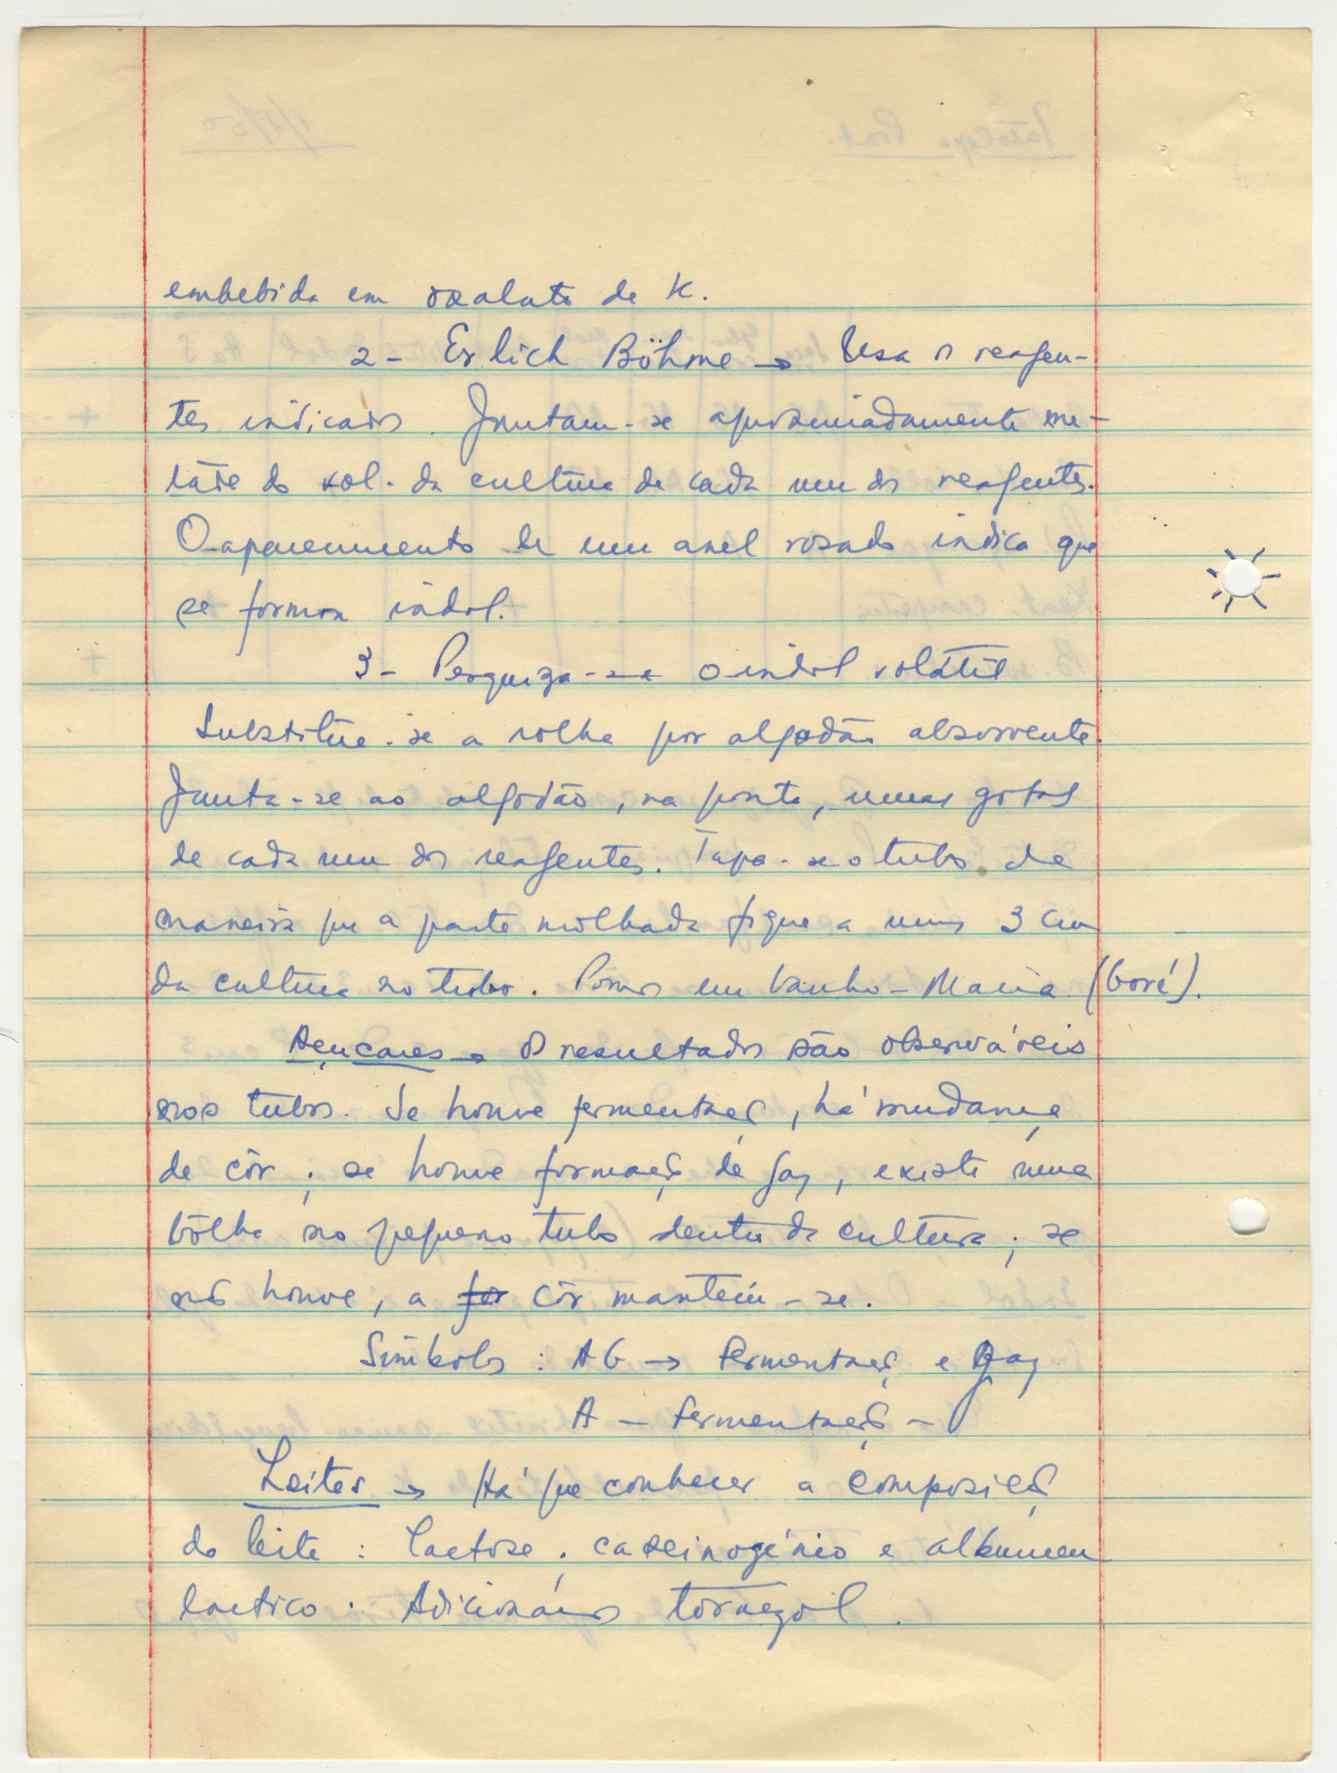 embebida em oxalato de K.
2 - Erlich Böhme → Usa os reagen-
tes indicados. Juntam-se aproximadamente me-
tade do vol. da cultura de cada um dos reagentes.
O aparecimento de um anel rosado indica que
se formou indol.
3 - Pesquiza-se o indol volátil
Substitúe-se a rolha por algodão absorvente.
Junta-se ao algodão, na ponta, umas gotas
de cada um dos reagentes. Tapa-se o tubo de
maneira que a parte molhada fique a uns 3 cm
da cultura no tubo. Pomos em banho-Maria
Açucares → Os resultados são observáveis
nos tubos. Se houve fermentação, há mudança
de côr; se houve formação de gaz, existe uma
bôlha no pequeno tubo dentro da cultura; se
não houve, a for côr mantem-se.
Símbolos : AG → fermentação e gaz
A - fermentação -
Leites → Há que conhecer a composição
do leite : lactose, caseinogénio e albumen
lactico. Adicionamos tornezol.